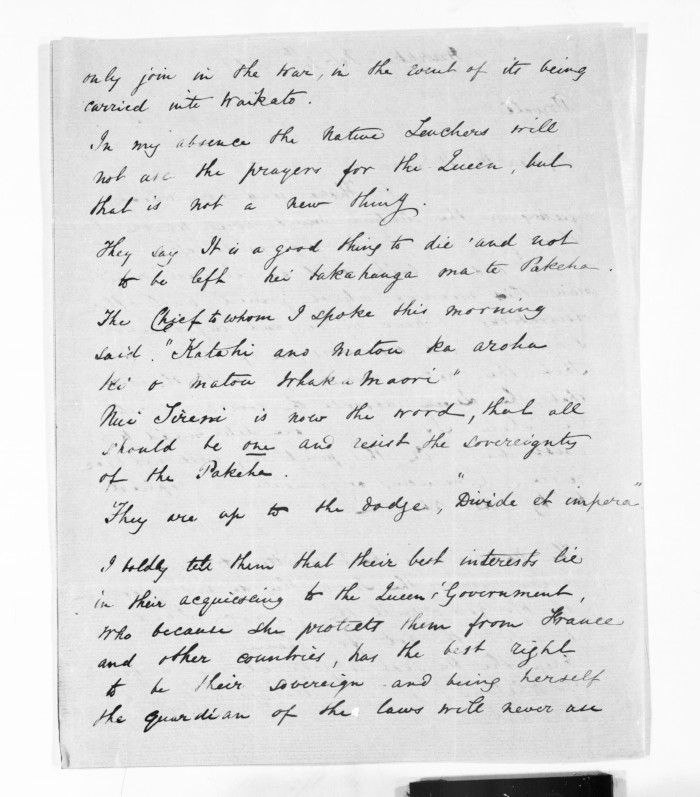 only join in the war, in the event of its being
carried into Waikato.
In my absence the Native Teachers will
not use the prayers for the Queen, but
that is not a new thing.
They say It is a good thing to die 'and not
to be left hei takahanga ma te Pakeha.
The Chief to whom I spoke this morning
said. "Katahi ano matou ka aroha
ki o matou whaka Maori"
is now the word, that all
should be one and resist the sovereignty
of the Pakeha.
They are up to the dodge, "Divide et impera"
I boldly tell them that their best interests lie
in their acquiescing to the Queen's Government,
who because she protects them from France
and other countries, has the best right
to be their sovereign and being herself
the guardian of the laws will never use